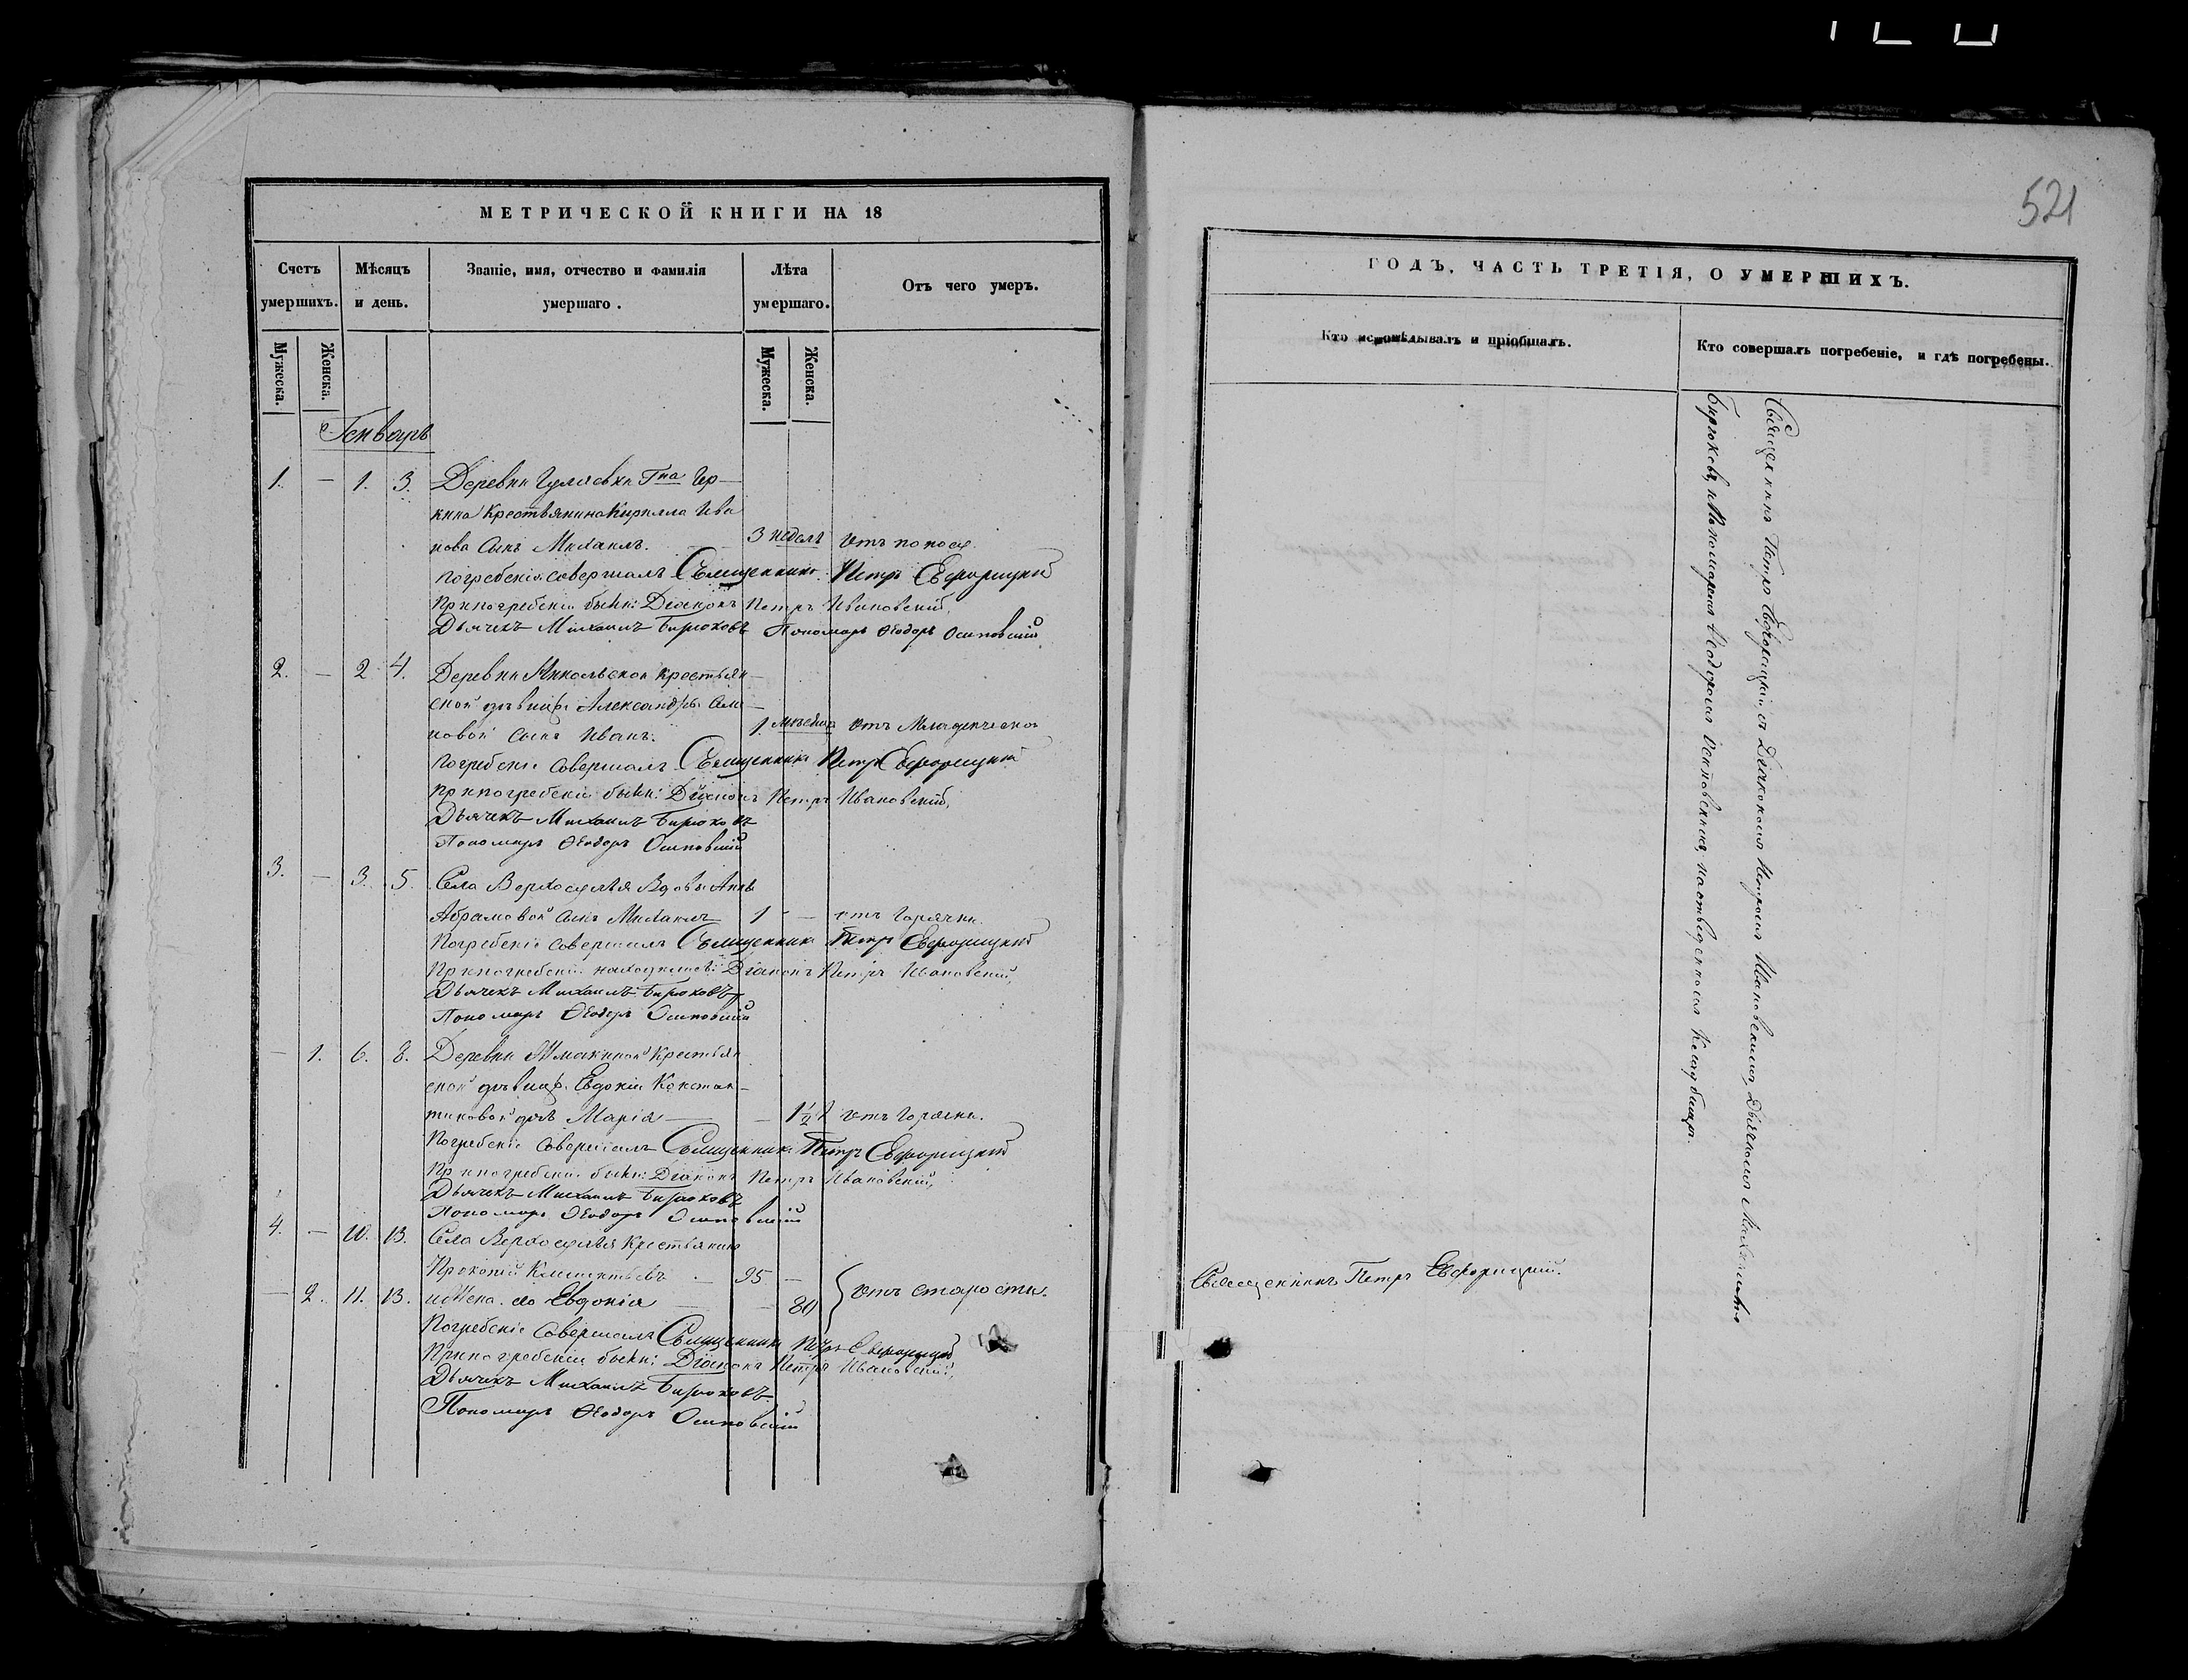 МЕТРИЧЕСКОЙ КНИГИ НА 18
Счетъ умершихъ.
Мѣсяцъ и день.
Званіе, имя, отчество и фамилія умершаго.
Лѣта умершаго.
Отъ чего умеръ.
Мужеска. Женска. Мужеска. Женска.
Генварь
1. — 1. 3. Деревни Гуляевки Гна
кина Крестьянина Кирилла Ива
нова сынъ Михаилъ. 3 недель отъ поноса
Погребеніе совершалъ Священникъ Петръ Еворицкій
При погребеніи были: Діаконъ Петръ Ивановскій,
Дьячекъ Михаилъ Бирюковъ Пономарь Ѳеодоръ Осиповскій
2. — 2 4. Деревни Никольской крестьян—
ской дѣвицы Александры Сем—
новой сынъ Иванъ. 1. мѣсяца отъ Младенческой
Погребеніе совершалъ Священникъ Петръ Еворицкій
При погребеніи были: Діаконъ Петръ Ивановскій,
Дьячекъ Михаилъ Бирюковъ
Пономарь Ѳеодоръ Осиповскій
3. — 3. 5. Села Верхоценья Вдовы Анны
Абрамовой сынъ Михаилъ 1 — отъ Горячки.
Погребеніе совершалъ Священникъ Петръ Еворицкій
При погребеніи находились: Діаконъ Петръ Ивановскій,
Дьячекъ Михаилъ Бирюковъ,
Пономарь Ѳеодоръ Осиповскій
— 1. 6. 8. Деревни Крестьян
ской дѣвицы Евдокіи Констан—
тиновой дочь Марія — — 1½ отъ Горячки.
Погребеніе совершалъ Священникъ Петръ Еворицкій
При погребеніи были: Діаконъ Петръ Ивановскій,
Дьячекъ Михаилъ Бирюковъ
Пономарь Ѳеодоръ Осиповскій
4. — 10. 13. Села Верхоценья Крестьянинъ
Прокопій Климентьевъ — 95 —
— 2. 11. 13. и Жена его Евдокія — — 80 отъ старости.
Погребеніе совершалъ Священникъ Петръ Еворицкій
При погребеніи были: Діаконъ Петръ Ивановскій,
Дьячекъ Михаилъ Бирюковъ
Пономарь Ѳеодоръ Осиповскій
521
ГОДЪ, ЧАСТЬ ТРЕТІЯ, О УМЕРШИХЪ.
Кто исповѣдывалъ и пріобщалъ.
Кто совершалъ погребеніе, и гдѣ погребены.
Священникъ Петръ Еворицкій.
Священникъ Петръ Еворицкій, съ Діакономъ Петромъ Ивановскимъ, Дьячкомъ Михаиломъ
Бирюковымъ, и Пономаремъ Ѳеодоромъ Осиповскимъ, на отведенномъ Кладбищѣ.